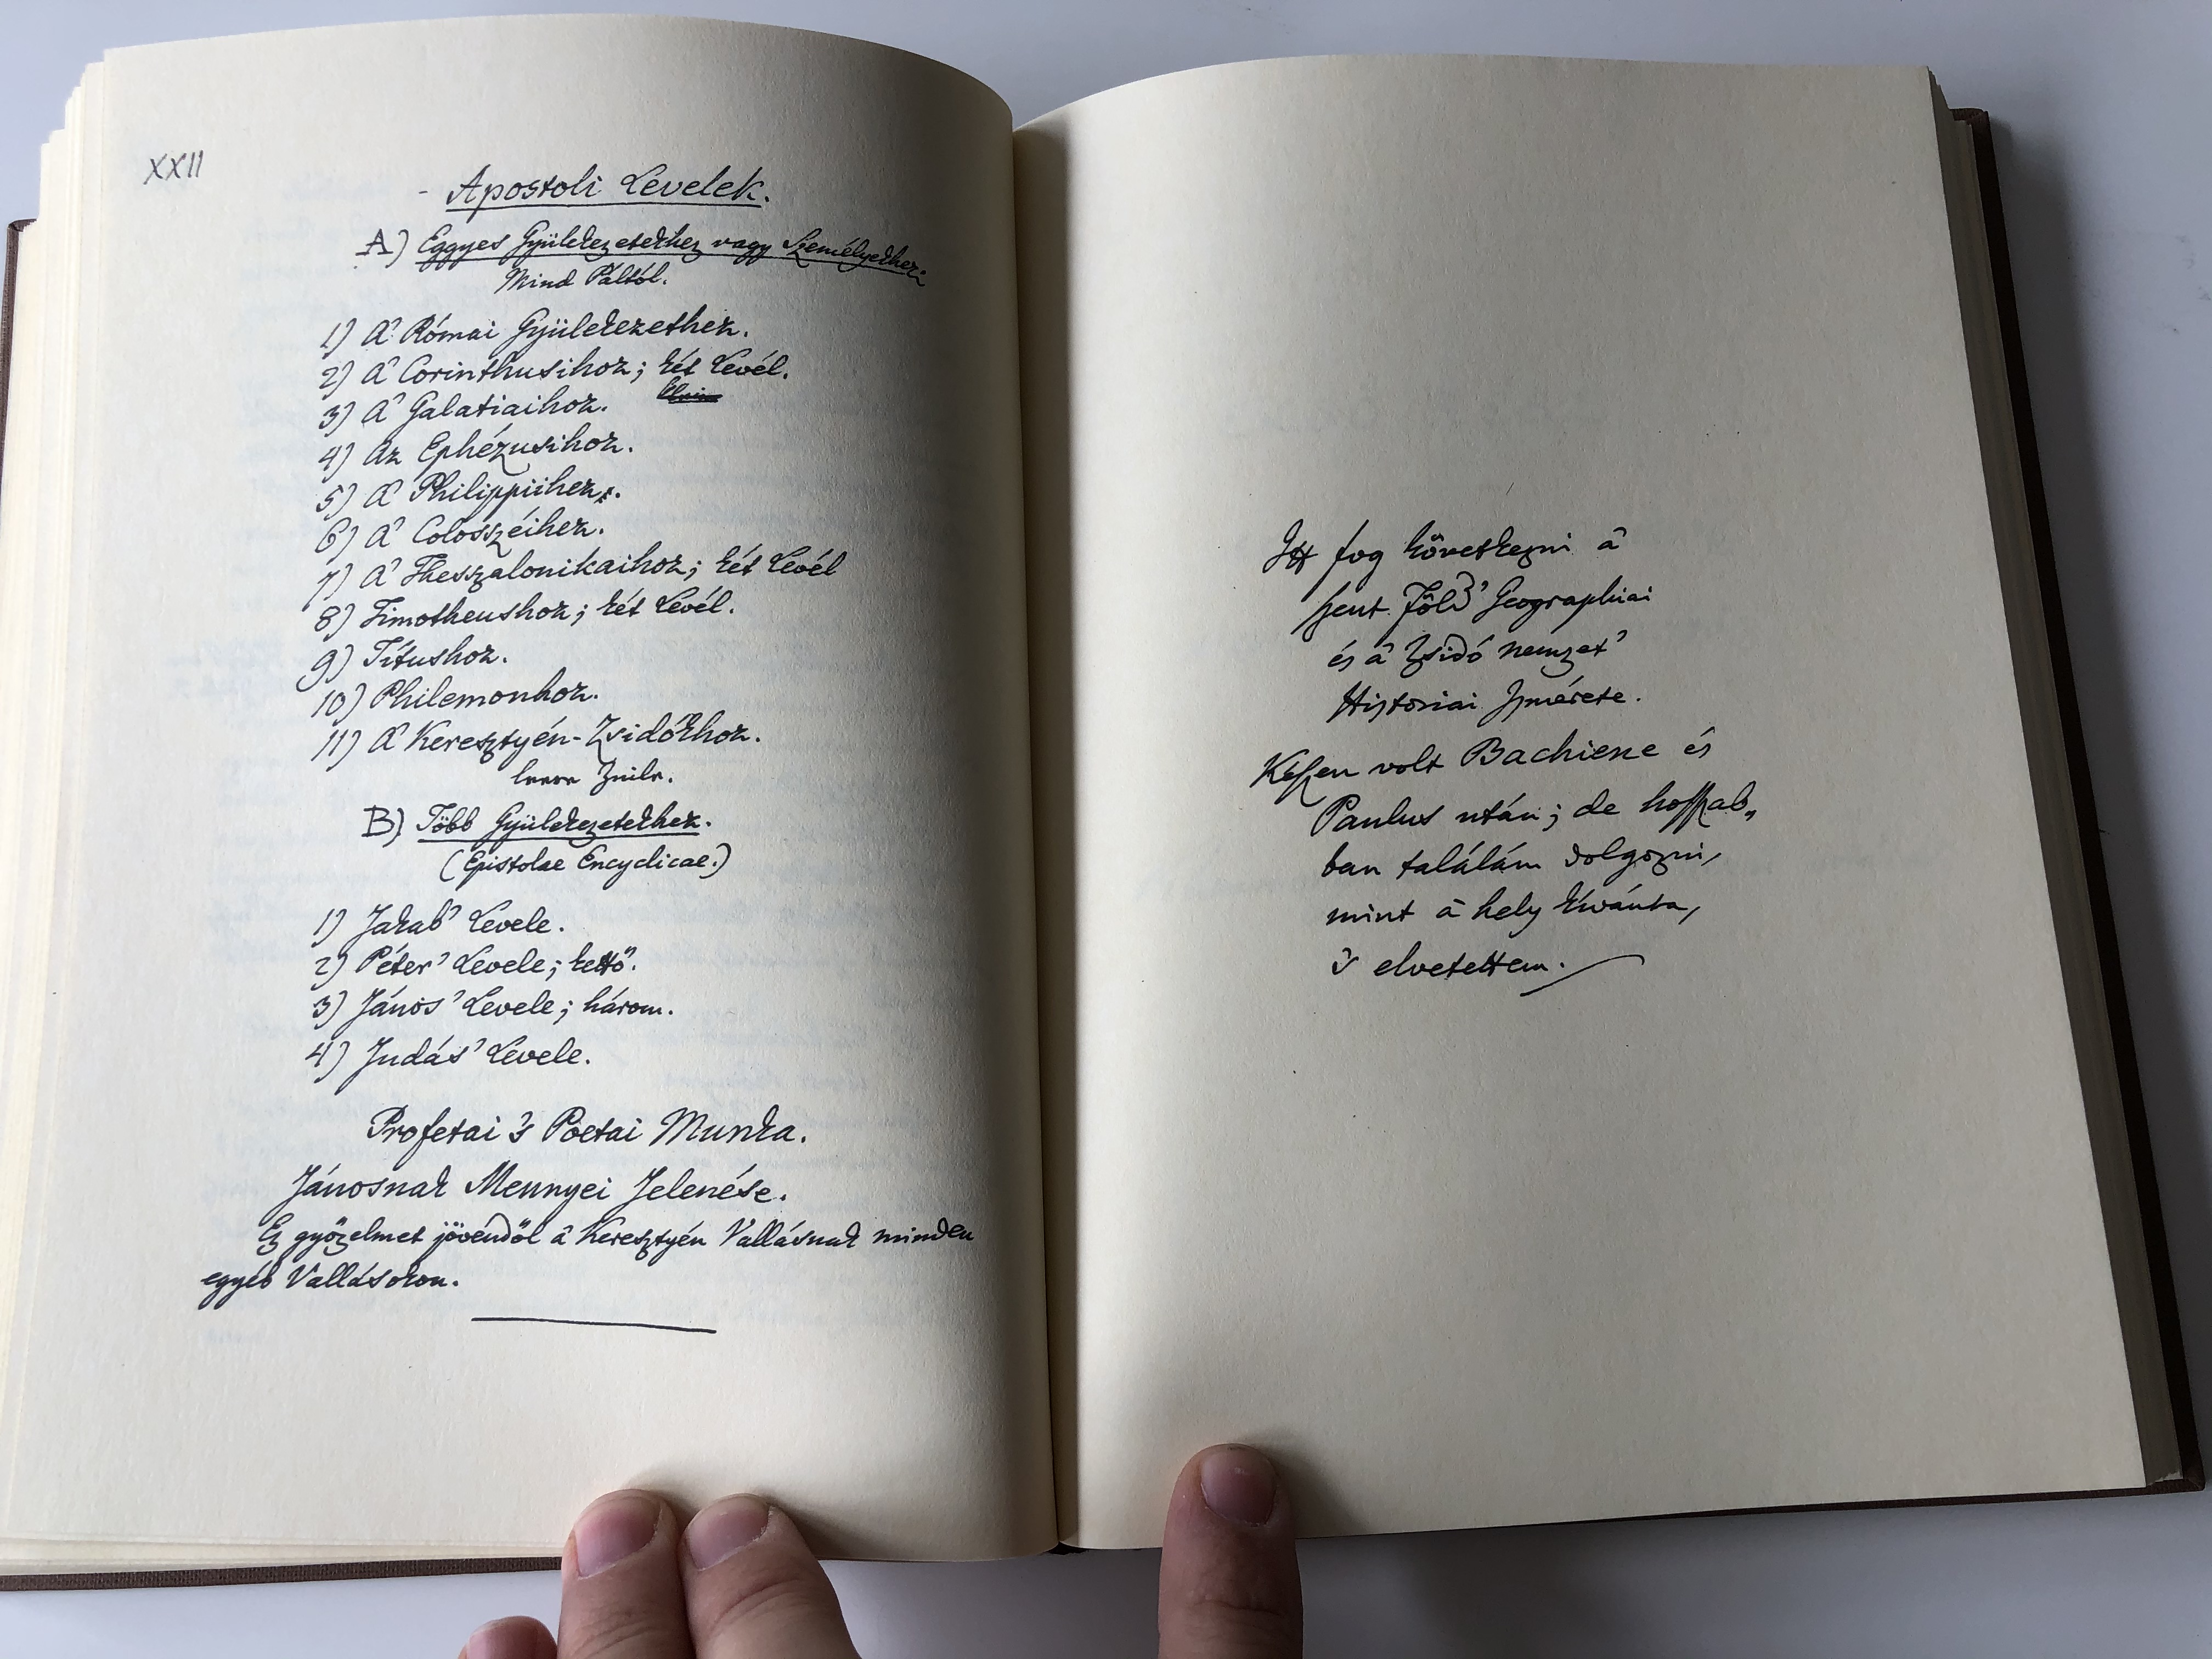 XXII
- Apostoli Levelek.
A) Eggyes Gyülekezetekhez vagy Személyekhez.
Mind Páltól.
1) A' Római Gyülekezethez.
2) A' Corinthusihoz; két Levél.
3) A' Galatiaihoz.
4) Az Ephézusihoz.
5) A' Philippiihez.
6) A' Colosszéihez.
7) A' Thesszalonikaihoz; két Levél
8) Timotheushoz; két Levél.
9) Títushoz.
10) Philemonhoz.
11) A' Keresztyén-Zsidókhoz.
B) Több Gyülekezetekhez.
(Epistolae Encyclicae.)
1) Jakab' Levele.
2) Péter' Levele; kettő.
3) János' Levele; három.
4) Judás' Levele.
Profetai 's Poetai Munka.
Jánosnak Mennyei Jelenése.
Ez győzelmet jövendöl a' Keresztyén Vallásnak minden
egyéb Vallásokon.
Itt fog következni a'
szent Föld' Geographiai
és a' Zsidó nemzet'
Historiai Ismérete.
Készen volt Bachiene és
Paulus után; de hosszab„
ban találám dolgozni,
mint a' hely kívánta,
's elvetettem.